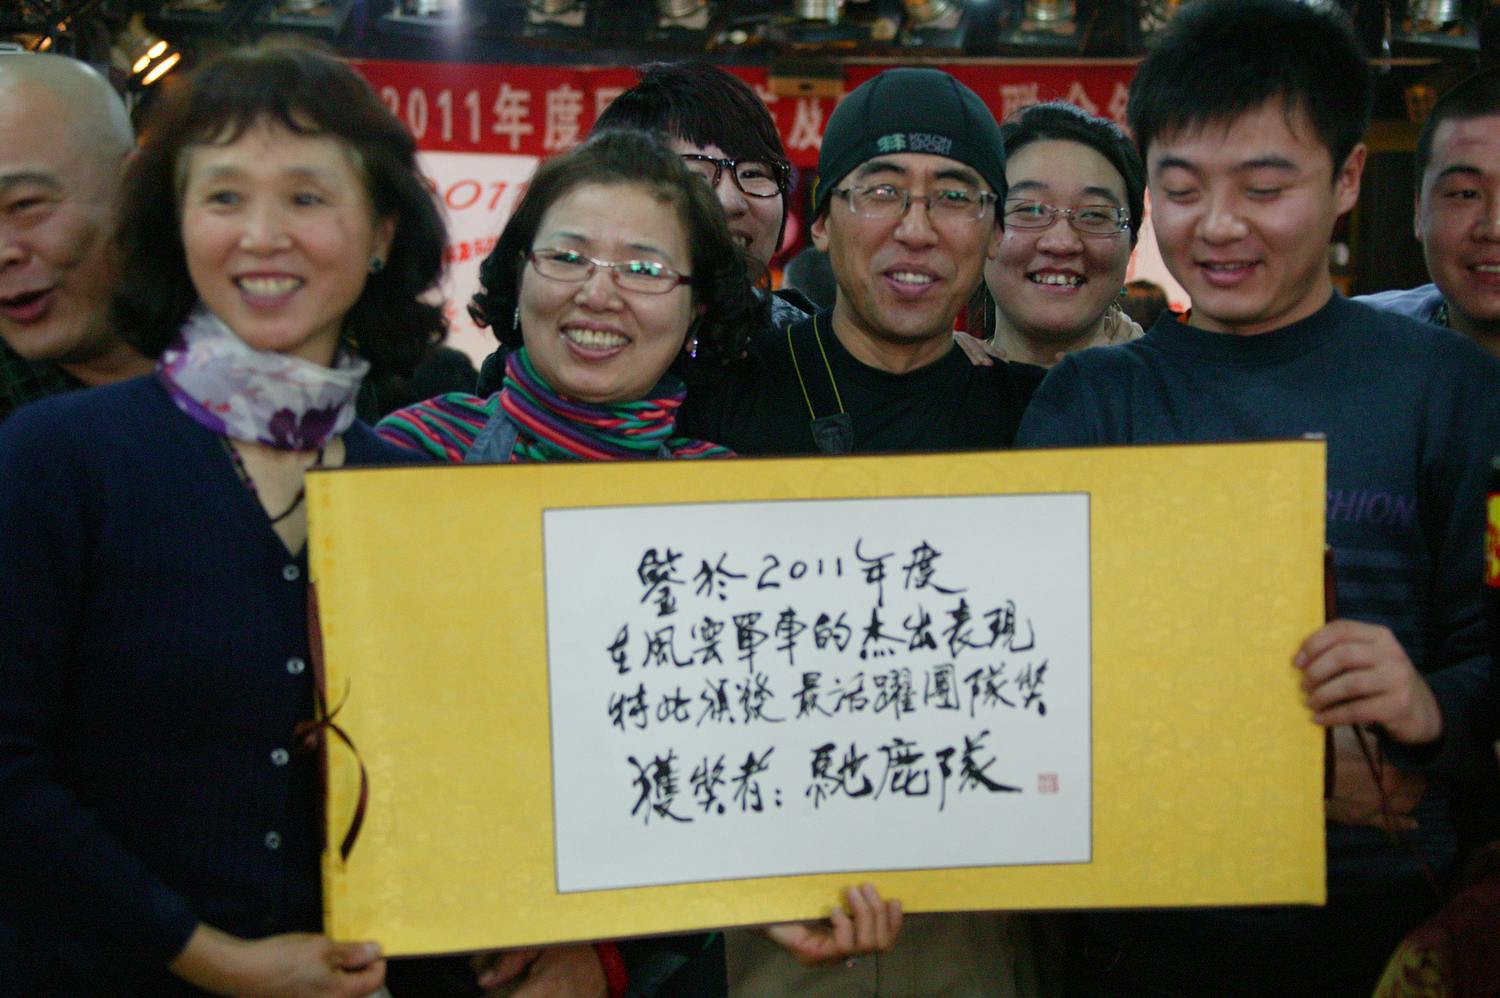 2011年度
联合
2011
KOLON
SPORT
鑒於2011年度
在風雲單車的杰出表現
特此頒發最活躍團隊獎
獲獎者：馳鹿隊
SHION